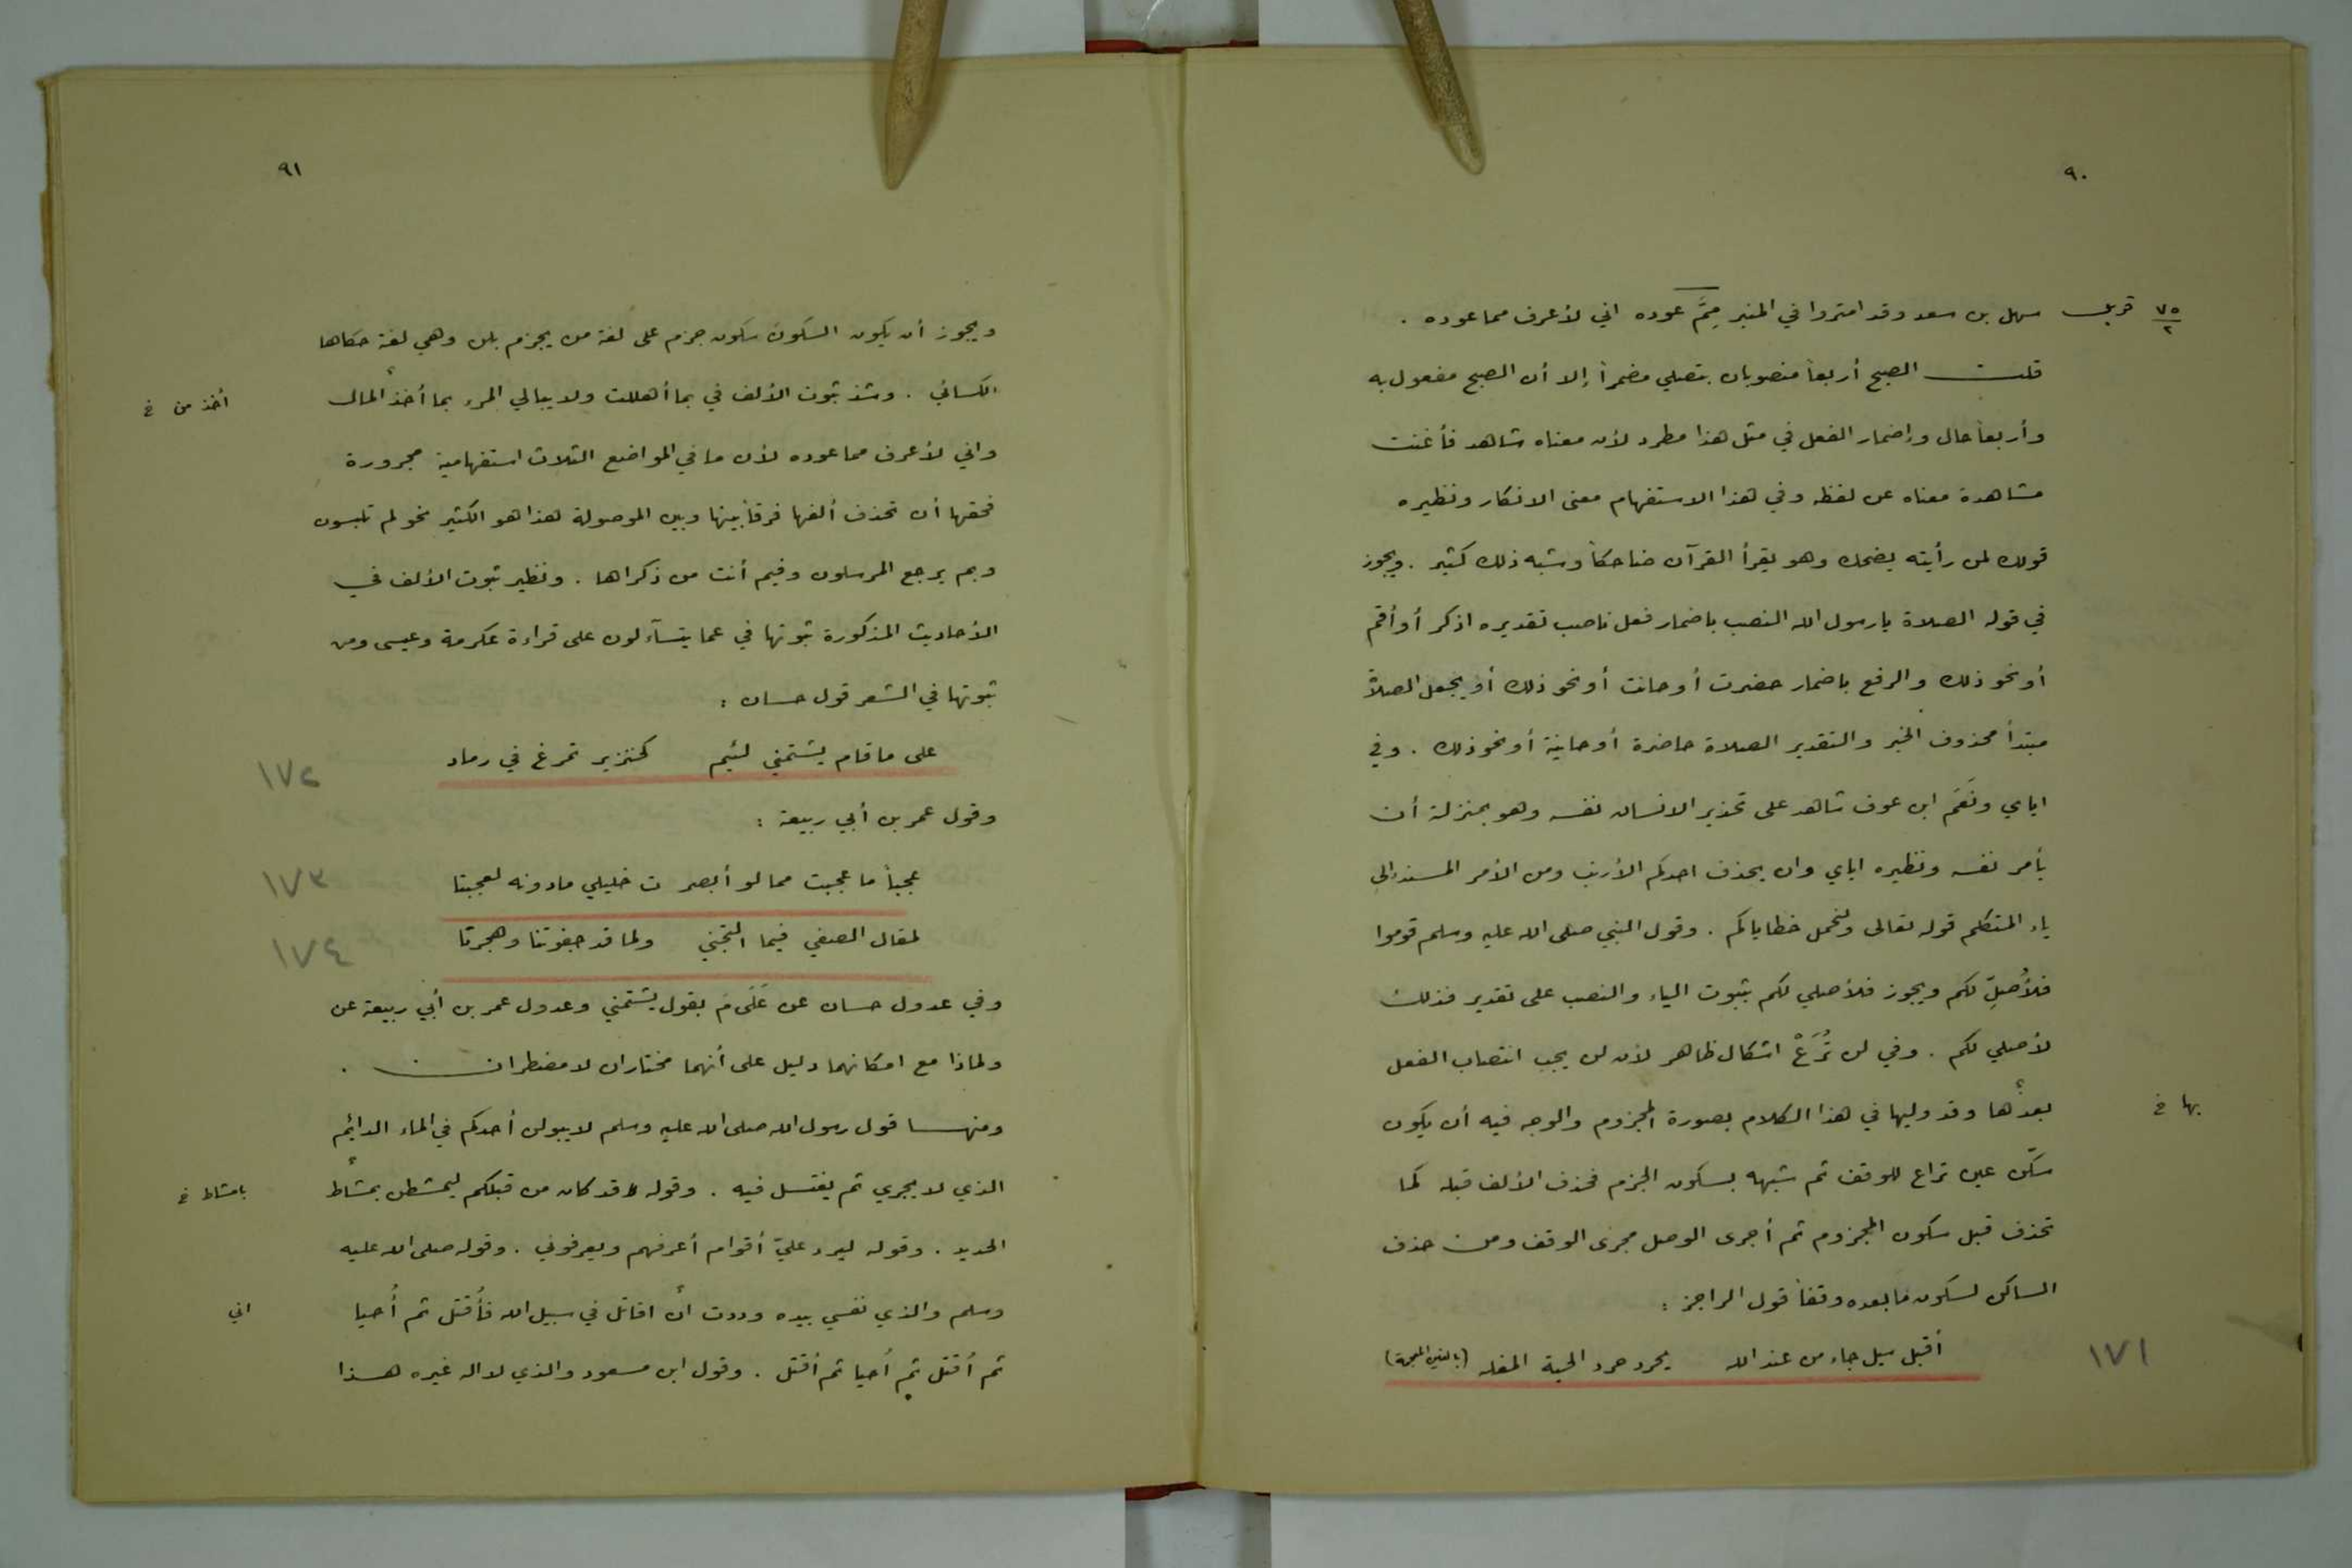 ٩٠
٧٥/٢ قريك سهل بن سعد وقد امتروا في المنبر مِمَّ عوده اني لأعرف مما عوده .
قلت الصبح أربعاً منصوبان بتصلي مضمراً إلا أن الصبح مفعول به
وأربعاً حال وإضمار الفعل في مثل هذا مطرد لأن معناه شاهد فأغنت
مشاهدة معناه عن لفظه وفي هذا الاستفهام معنى الانكار ونظيره
قولك لمن رأيته يضحك وهو يقرأ القرآن ضاحكاً وشبه ذلك كثير . ويجوز
في قوله الصلاة يا رسول الله النصب باضمار فعل ناصب تقديره اذكر أو أقم
أو نحو ذلك والرفع باضمار حضرت أو حانت أو نحو ذلك أو يجعل الصلاة
مبتدأ محذوف الخبر والتقدير الصلاة حاضرة أو حاينة أو نحو ذلك . وفي
اياي ونَعَم ابن عوف شاهد على تحذير الانسان نفسه وهو بمنزلة أن
يأمر نفسه ونظيره اياي وان يحذف احدكم الأرنب ومن الأمر المسند إلى
ياء المتكلم قوله تعالى ولنحمل خطاياكم . وقول النبي صلى الله عليه وسلم قوموا
فلأُصلِّ لكم ويجوز فلأصلي لكم بثبوت الياء والنصب على تقدير فذلك
لأصلي لكم . وفي لن تُرَعْ اشكال ظاهر لأن لن يجب انتصاب الفعل
بعدها وقد وليها في هذا الكلام بصورة المجزوم والوجه فيه أن يكون
بها خ
سكّن عين تراع للوقف ثم شبهه بسكون الجزم فحذف الألف قبله كما
تحذف قبل سكون المجزوم ثم أجرى الوصل مجرى الوقف ومن حذف
الساكن لسكون ما بعده وقفاً قول الراجز :
أقبل سيل جاء من عند الله يحرد حرد الحية المغله (بالغين المعجمة)
١٧١
٩١
ويجوز أن يكون السكون سكون جزم على لغة من يجزم بلن وهي لغة حكاها
الكسائي . وشذ ثبوت الألف في بما أهللت ولا يبالي المرء بما أخذ المال
أخذ من خ
واني لأعرف مما عوده لأن ما في المواضع الثلاث استفهامية مجرورة
فحقها أن تحذف ألفها فرقاً بينها وبين الموصولة هذا هو الكثير نحو لم تلبسون
وبم يرجع المرسلون وفيم أنت من ذكراها . ونظير ثبوت الألف في
الأحاديث المذكورة ثبوتها في عما يتسآءلون على قراءة عكرمة وعيسى ومن
ثبوتها في الشعر قول حسان :
على ما قام يشتمني لئيم كخنزير تمرغ في رماد
١٧٢
وقول عمر بن أبي ربيعة :
عجباً ما عجبت مما لو أبصر ت خليلي مادونه لعجبتا
١٧٣
لمقال الصفي فيما التجني ولما قد جفوتنا وهجرتا
١٧٤
وفي عدول حسان عن عَلَى مَ بقول يشتمني وعدول عمر بن أبي ربيعة عن
ولماذا مع امكانهما دليل على أنهما مختاران لا مضطران .
ومنها قول رسول الله صلى الله عليه وسلم لا يبولن أحدكم في الماء الدائم
الذي لا يجري ثم يغتسل فيه . وقوله قد كان من قبلكم ليمشطن بمشاط
بامشاط خ
الحديد . وقوله ليرد عليّ أقوام أعرفهم ويعرفوني . وقوله صلى الله عليه
وسلم والذي نفسي بيده وددت أن اقاتل في سبيل الله فأُقتل ثم أُحيا
اني
ثم أُقتل ثم أُحيا ثم أقتل . وقول ابن مسعود والذي لا اله غيره هذا